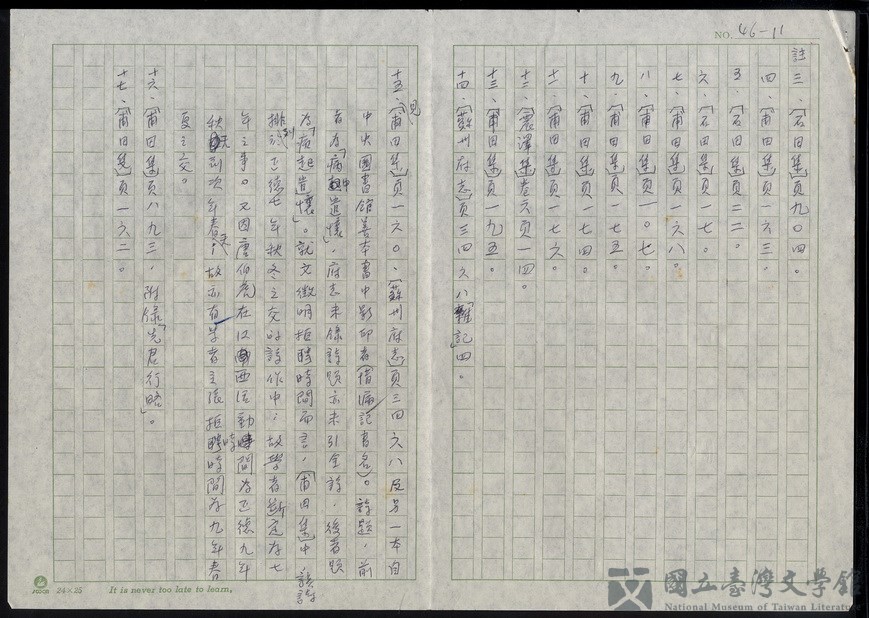 NO. 46-11
註三、《石田集》頁九〇四。
四、《甫田集》頁一六三。
五、《石田集》頁二二。
六、《石田集》頁一七。
七、《甫田集》頁一六八。
八、《甫田集》頁一〇七。
九、《甫田集》頁一七五。
十、《甫田集》頁一七四。
十一、《甫田集》頁一七六。
十二、《震澤集》卷六頁一四。
十三、《甫田集》頁一九五。
十四、《蘇州府志》頁三四六八「雜記」四。
十五、見《甫田集》頁一六〇、《蘇州府志》頁三四六八及另一本由
中央圖書館善本書中影印者(惜漏記書名)。詩題,前
者為「病中遣懷」,府志未錄詩題亦未引全詩,後者題
為「病起遣懷」。就文徵明拒聘時間而言,《甫田集》中,該詩
排列於正德七年秋冬之交的詩作中;故學者斷定為七
年之事。又因唐伯虎在江西活動時間為正德九年
秋天到次年春天,故亦有學者主張拒聘時間為九年春
夏之交。
十六、《甫田集》頁八九三,附錄「先君行略」。
十七、《甫田集》頁一六二。
24×25 It is never too late to learn.
國立臺灣文學館
National Museum of Taiwan Literature